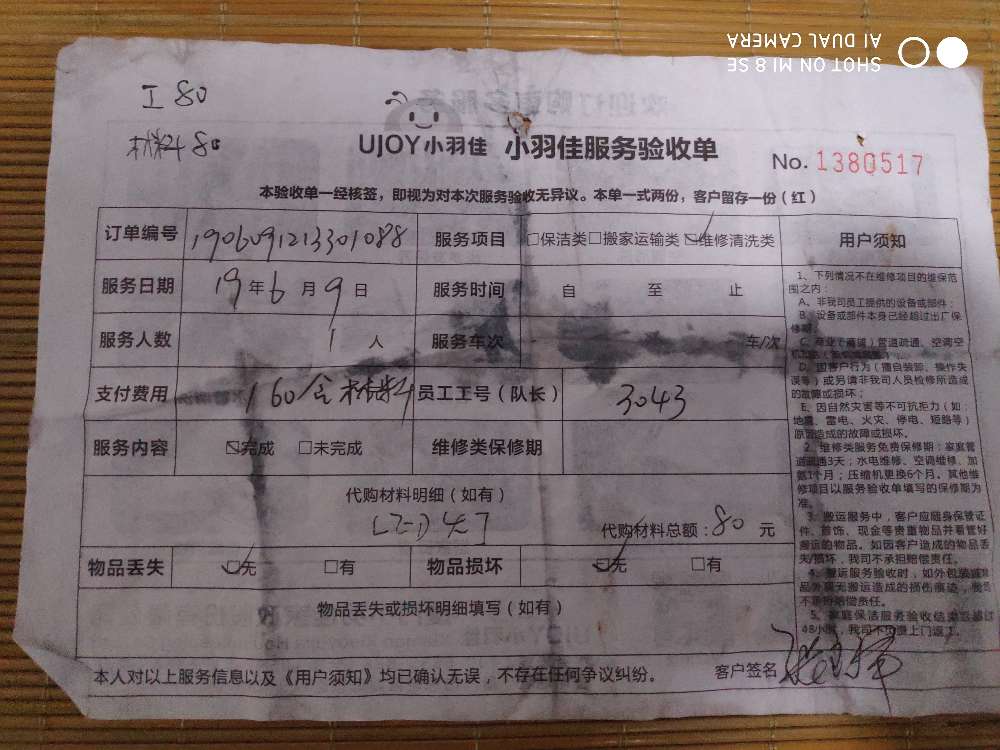 SHOT ON MI 8 SE
AI DUAL CAMERA
工 80
材料 80
UJOY小羽佳 小羽佳服务验收单
No. 1380517
本验收单一经核签，即视为对本次服务验收无异议。本单一式两份，客户留存一份（红）
订单编号 1906091213301088 服务项目 □保洁类□搬家运输类☑维修清洗类
服务日期 19年6月9日 服务时间 自 至 止
服务人数 1人 服务车次 车/次
支付费用 160/含材料 员工工号（队长） 3043
服务内容 ☑完成 □未完成 维修类保修期
代购材料明细（如有）
LED灯 代购材料总额：80元
物品丢失 ☑无 □有 物品损坏 ☑无 □有
物品丢失或损坏明细填写（如有）
本人对以上服务信息以及《用户须知》均已确认无误，不存在任何争议纠纷。 客户签名
用户须知
1、下列情况不在维修项目的维保范
围之内：
A、非我司员工提供的设备或部件；
B、设备或部件本身已经超过出厂保
修期
C、商业（商铺）管道疏通、空调空
D、因客户行为（擅自装卸、操作失
误等）或另请非我司人员检修所造成
的故障或损坏；
E、因自然灾害等不可抗拒力（如：
地震、雷电、火灾、停电、短路等）
原因造成的故障或损坏。
2、维修类服务免费保修期：家庭管
道疏通3天；水电维修、空调维修、加
氨1个月；压缩机更换6个月。其他维
修项目以服务验收单填写的保修期为
准。
3、搬运服务中，客户应随身保管证
件、首饰、现金等贵重物品并看管好
搬运的物品。如因客户造成的物品丢
失/损坏，我司不承担赔偿责任。
4、搬运服务验收时，如外包装或
品外观无搬运造成的损伤痕迹，我司
不承担赔偿责任。
5、家庭保洁服务验收结束后超过
48小时，我司不负责上门返工。